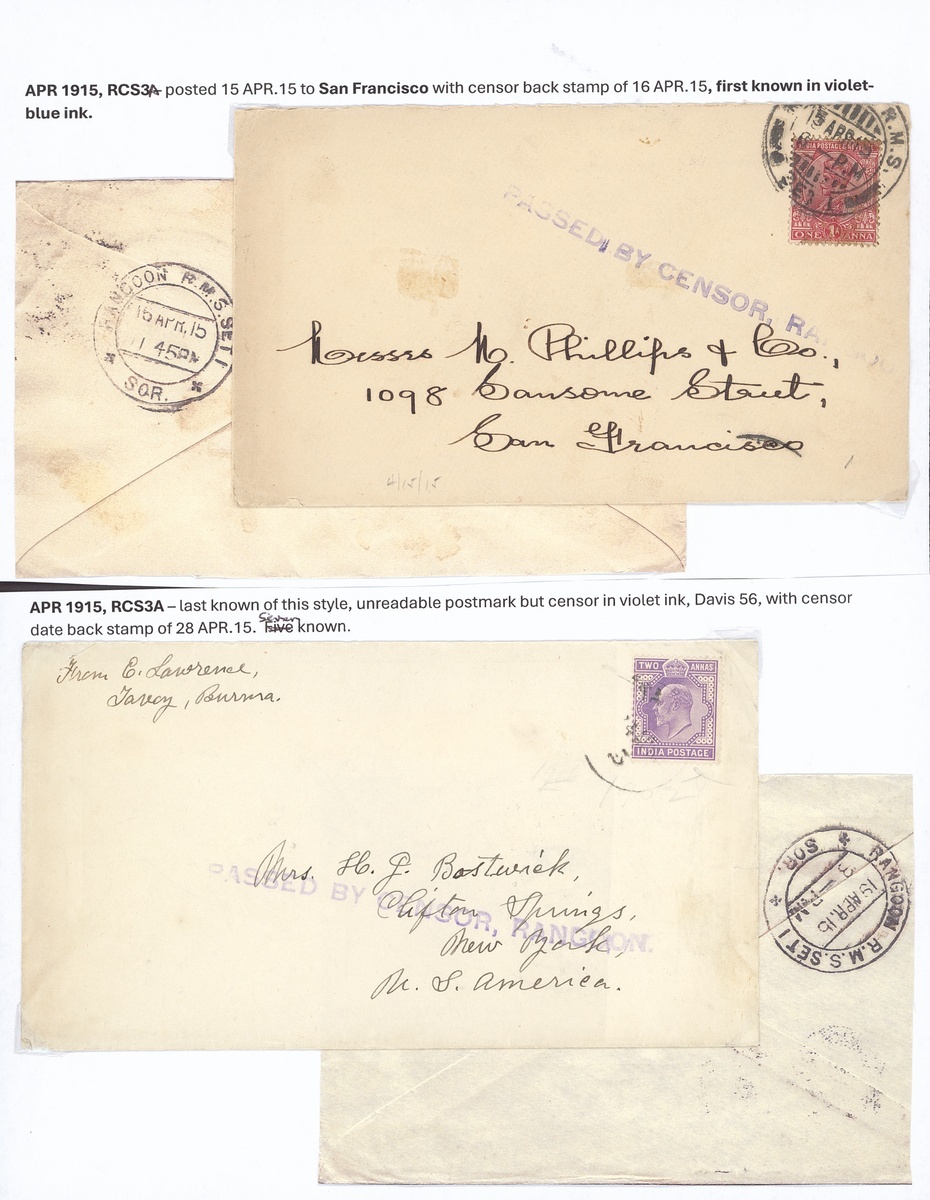 APR 1915, RCS3A posted 15 APR.15 to San Francisco with censor back stamp of 16 APR.15, first known in violet-
blue ink.
R.M.S.
15 APR
INDIA POSTAGE & REVENUE
ONE 1A ANNA
PASSED BY CENSOR, RA
RANGOON R.M.S. SET I
16 APR.15
11 45PM
SOR.
Messrs M. Phillips & Co.,
1098 Sansome Street,
San Francisco
4/15/15
APR 1915, RCS3A – last known of this style, unreadable postmark but censor in violet ink, Davis 56, with censor
date back stamp of 28 APR.15. Five Seven known.
From E. Lawrence,
Tavoy, Burma.
TWO ANNAS
INDIA POSTAGE
PASSED BY CENSOR, RANGOON.
Mrs. H. J. Bostwick,
Clifton Springs,
New York,
U. S. America.
SOR. RANGOON R.M.S. SET I
19 APR.15